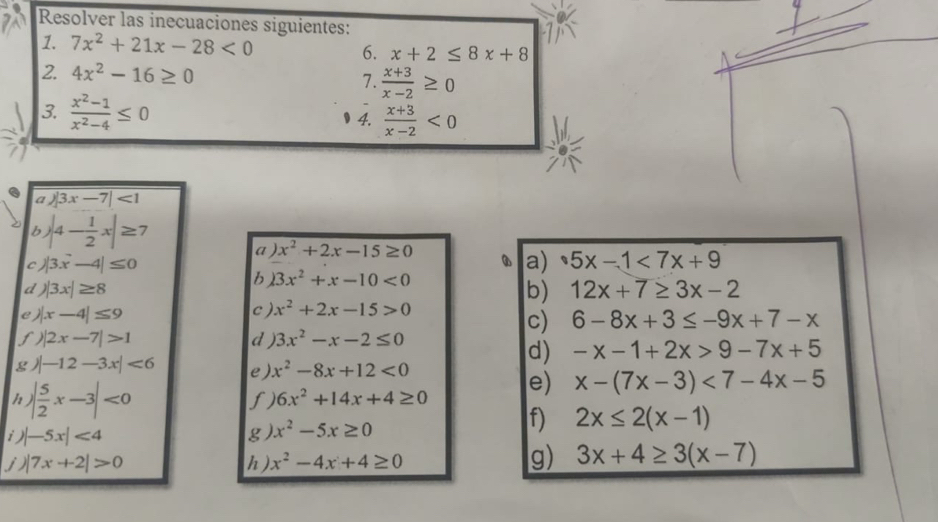 Resolver las inecuaciones siguientes:
1. 7x² + 21x − 28 < 0
2. 4x² − 16 ≥ 0
3. (x²−1)/(x²−4) ≤ 0
6. x + 2 ≤ 8 x + 8
7. (x+3)/(x−2) ≥ 0
4. (x+3)/(x−2) < 0
a) |3x − 7| < 1
b) |4 − 1/2 x| ≥ 7
c) |3x − 4| ≤ 0
d) |3x| ≥ 8
e) |x − 4| ≤ 9
f) |2x − 7| > 1
g) |−12 − 3x| < 6
h) |5/2 x − 3| < 0
i) |−5x| < 4
j) |7x + 2| > 0
a) x² + 2x − 15 ≥ 0
b) 3x² + x − 10 < 0
c) x² + 2x − 15 > 0
d) 3x² − x − 2 ≤ 0
e) x² − 8x + 12 < 0
f) 6x² + 14x + 4 ≥ 0
g) x² − 5x ≥ 0
h) x² − 4x + 4 ≥ 0
a) 5x − 1 < 7x + 9
b) 12x + 7 ≥ 3x − 2
c) 6 − 8x + 3 ≤ −9x + 7 − x
d) − x − 1 + 2x > 9 − 7x + 5
e) x − (7x − 3) < 7 − 4x − 5
f) 2x ≤ 2(x − 1)
g) 3x + 4 ≥ 3(x − 7)